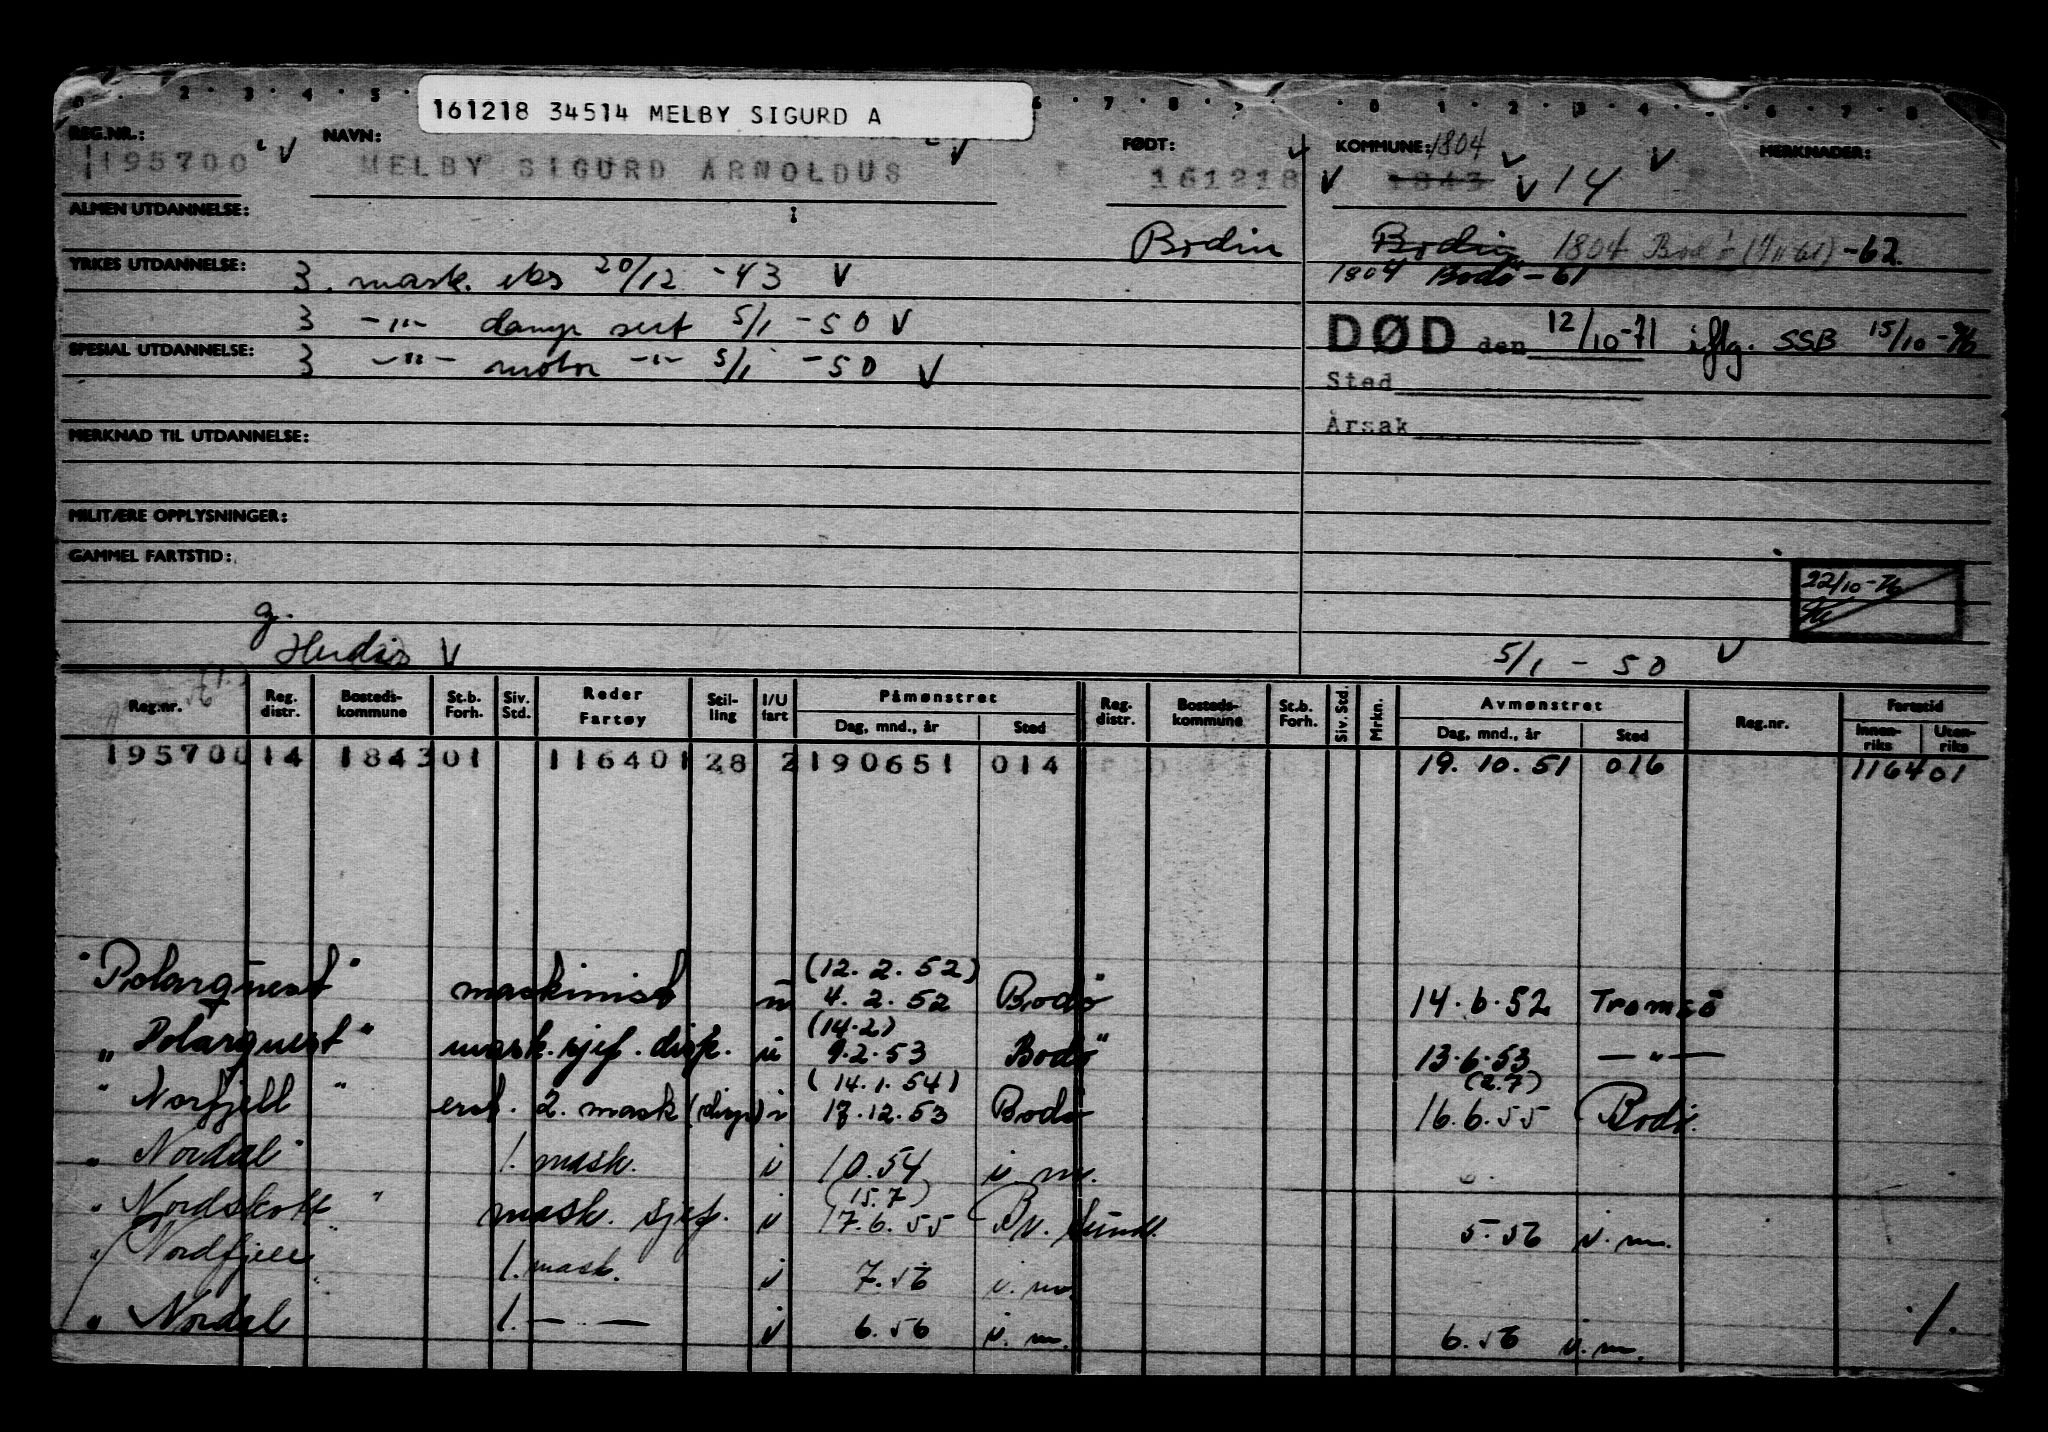 161218 34514 MELBY SIGURD A
REG.NR.: NAVN: FØDT: KOMMUNE: 1804 MERKNADER:
195700 MELBY SIGURD ARNOLDUS 161218 1843 14
ALMEN UTDANNELSE:
Bodin Bodin 1804 Bodø -62
YRKES UTDANNELSE: 3. mask. eks 20/12 -43 1804 Bodø -61
3 -"- damp sert 5/1 -50 DØD den 12/10-71 iflg. SSB 15/10-76
SPESIAL UTDANNELSE: 3 -"- motor -"- 5/1 -50
Sted
Årsak
MERKNAD TIL UTDANNELSE:
MILITÆRE OPPLYSNINGER:
GAMMEL FARTSTID:
22/10-76
g.
5/1 - 50
Reg.nr. Reg. distr. Bosteds-kommune St.b. Forh. Siv. Std. Reder Fartøy Stil-ling I/U fart Påmønstret Dag, mnd., år Sted Reg. distr. Bosteds-kommune St.b. Forh. Siv. Std. Mrkn. Avmønstret Dag, mnd., år Sted Reg.nr. Fartstid Innen-riks Uten-riks
195700 14 1843 01 116401 28 2 190651 014 19. 10. 51 016 116401
(12. 2. 52)
"Polarquest" maskinist u 4. 2. 52 Bodø 14. 6. 52 Tromsø
(14.2)
"Polarquest" mask. sjef. disp. u 9.2.53 Bodø 13.6.53 -"-
(14.1.54) (2.7)
"Norfjell" erst. 2. mask (disp) i 18.12.53 Bodø 16.6.55 Bodø.
"Nordal" 1. mask. i 10.54 i. m.
(15.7)
"Nordskott" mask. sjef. i 17.6.55 5.56 i. m.
"Nordfjell" 1. mask. i 7.56 i. m.
"Nordal 1. - " - i 6.56 i. m. 6.56 i. m.